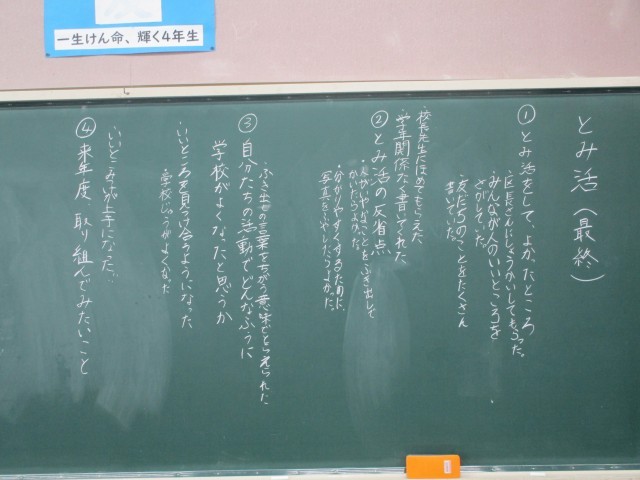 一生けん命、輝く4年生
とみ活（最終）
①とみ活をして、よかったところ
・区長さんにしょうかいしてもらった。
みんなが人のいいところを
さがしていた。
・友だちのことをたくさん
書いていた。
・校長先生にほめてもらえた。
・学年関係なく書いてくれた
②とみ活の反省点
ことをふき出しで
かいたらよかった。
・分かりやすくするために、
写真をふやしたらよかった。
③自分たちの活動でどんなふうに
学校がよくなったと思うか
の言葉をちがう意味でとらえられた
いいところを見つけ合うようになった
学校じゅうがよくなった
いいとこみつけが上手になった…
④来年度、取り組んでみたいこと